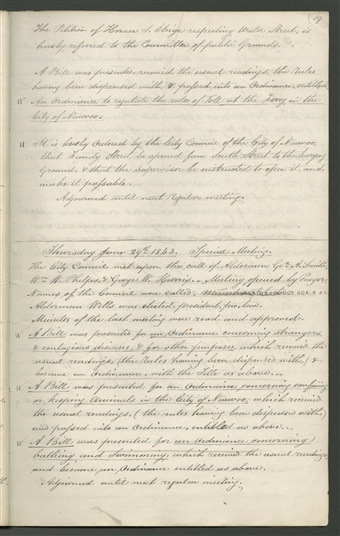 19.
The Petition of Horace S. Eldrige respecting Water Street, is
hereby referred to the Committee of public Grounds.
A Bill was presented, received the usual readings, the Rules
having been dispensed with, & passed into an Ordinance, entitled
An Ordinance to regulate the rates of Toll at the Ferry in the
City of Nauvoo.
It is hereby Ordered by the City Council of the City of Nauvoo,
that Street be opened from South Street to the burying
Ground & that the supervisor be instructed to open it, and
make it passable.
Adjourned until next Regular meeting.
Thursday June 29th. 1843. Special Meeting.
The City Council met upon the call of Aldermen Geo. A. Smith,
Wm. W. Phelps & George W. Harris. Meeting opened by Prayer.
Names of the Council were called.
Alderman Wells was elected president, pro. tem.
Minutes of the last meeting were read and approved.
A Bill was presented for an Ordinance concerning strangers
& contagious diseases, & for other purposes which received the
usual readings, (the Rules having been dispensed with,) &
became an Ordinance, with the Title as above.
A Bill was presented for an Ordinance concerning confining
or keeping Animals in the City of Nauvoo, which received
the usual readings, (the rules having been dispensed with)
and passed into an Ordinance, entitled as above.
A Bill was presented for an Ordinance concerning
bathing and swimming, which received the usual readings
and became an Ordinance entitled as above.
Adjourned until next regular meeting.